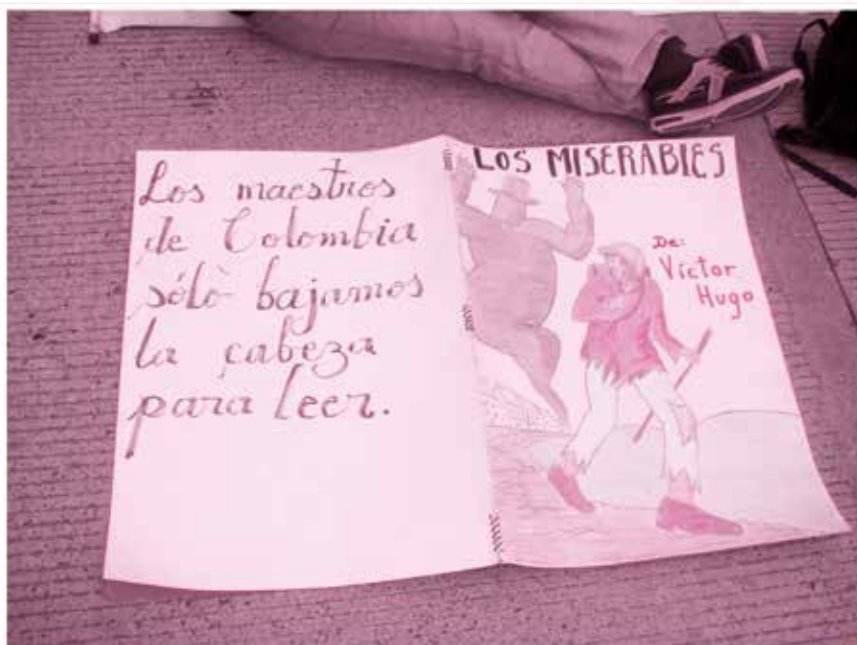 Los maestros
de Colombia
sólò bajamos
la cabeza
para leer.
LOS MISERABLES
De:
Víctor
Hugo